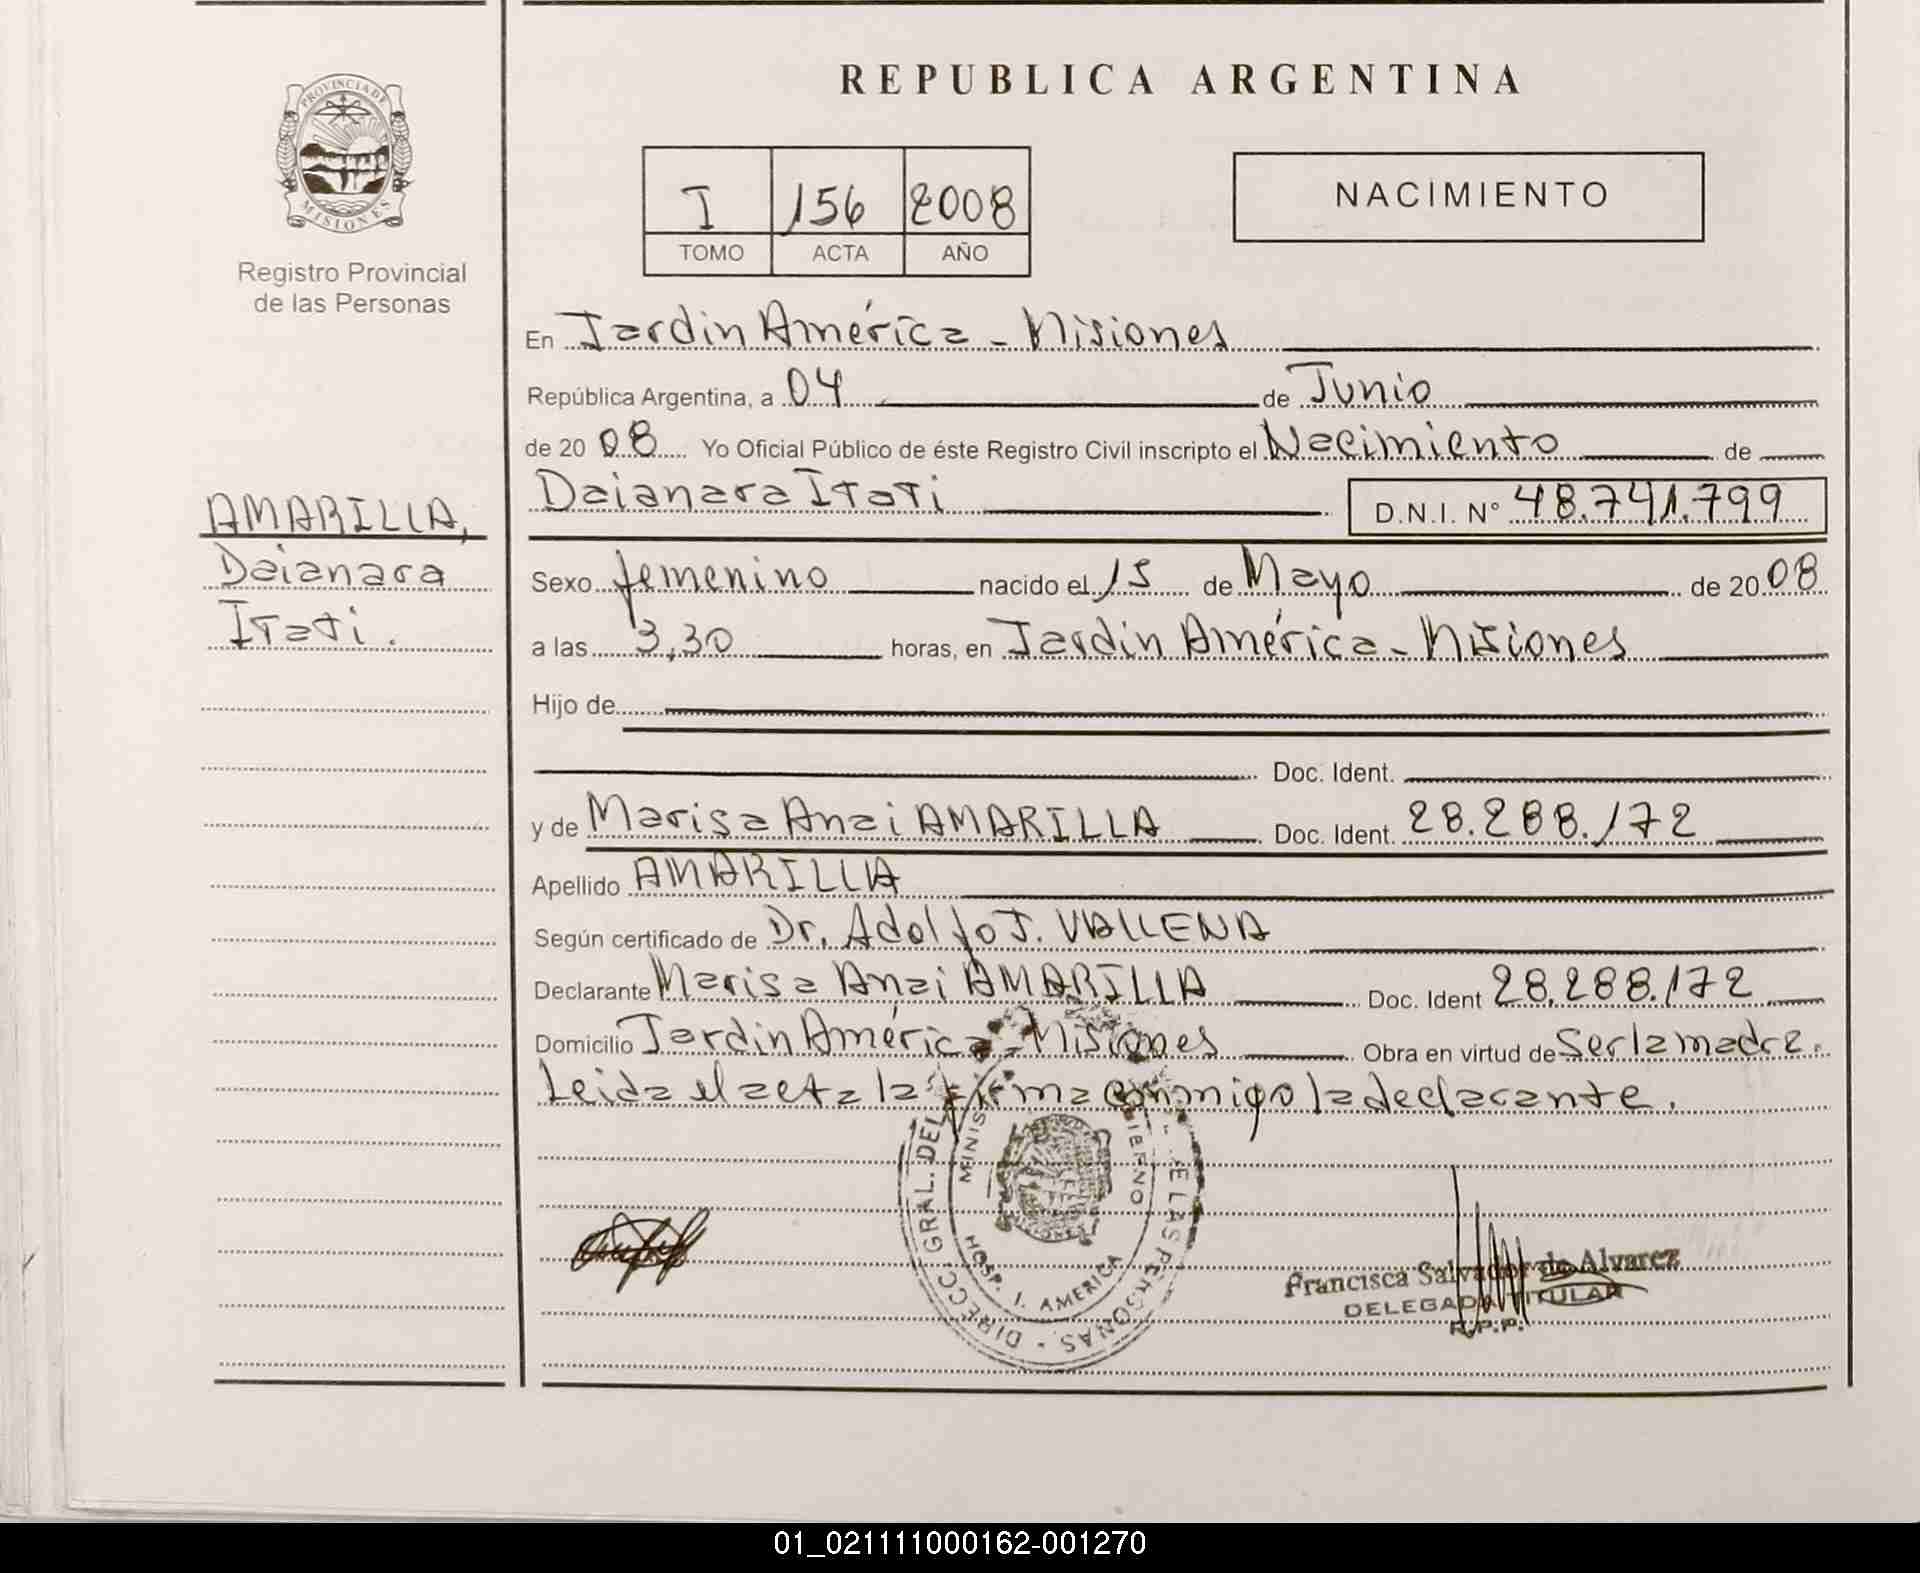 PROVINCIA DE
MISIONES
Registro Provincial
de las Personas
AMARILLA,
Daianara
Itatí.
REPUBLICA ARGENTINA
I 156 2008
TOMO ACTA AÑO
NACIMIENTO
En Jardín América - Misiones
República Argentina, a 04 de Junio
de 20 08 Yo Oficial Público de éste Registro Civil inscripto el Nacimiento de
Daianara Itatí D.N.I. N° 48.741.799
Sexo femenino nacido el 15 de Mayo de 20 08
a las 3,30 horas, en Jardín América - Misiones
Hijo de
Doc. Ident.
y de Marisa Anai AMARILLA Doc. Ident. 28.288.172
Apellido AMARILLA
Según certificado de Dr. Adolfo J. VALLENA
Declarante Marisa Anai AMARILLA Doc. Ident 28.288.172
Domicilio Jardín América - Misiones Obra en virtud de Ser la madre.
Leida el acta la firma conmigo la declarante.
DIRECC. GRAL. DEL E LAS PERSONAS
MINIS BIERNO
HOSP. J. AMERICA
Francisca Salvador de Alvarez
DELEGADA TITULAR
R.P.P.
01_021111000162-001270